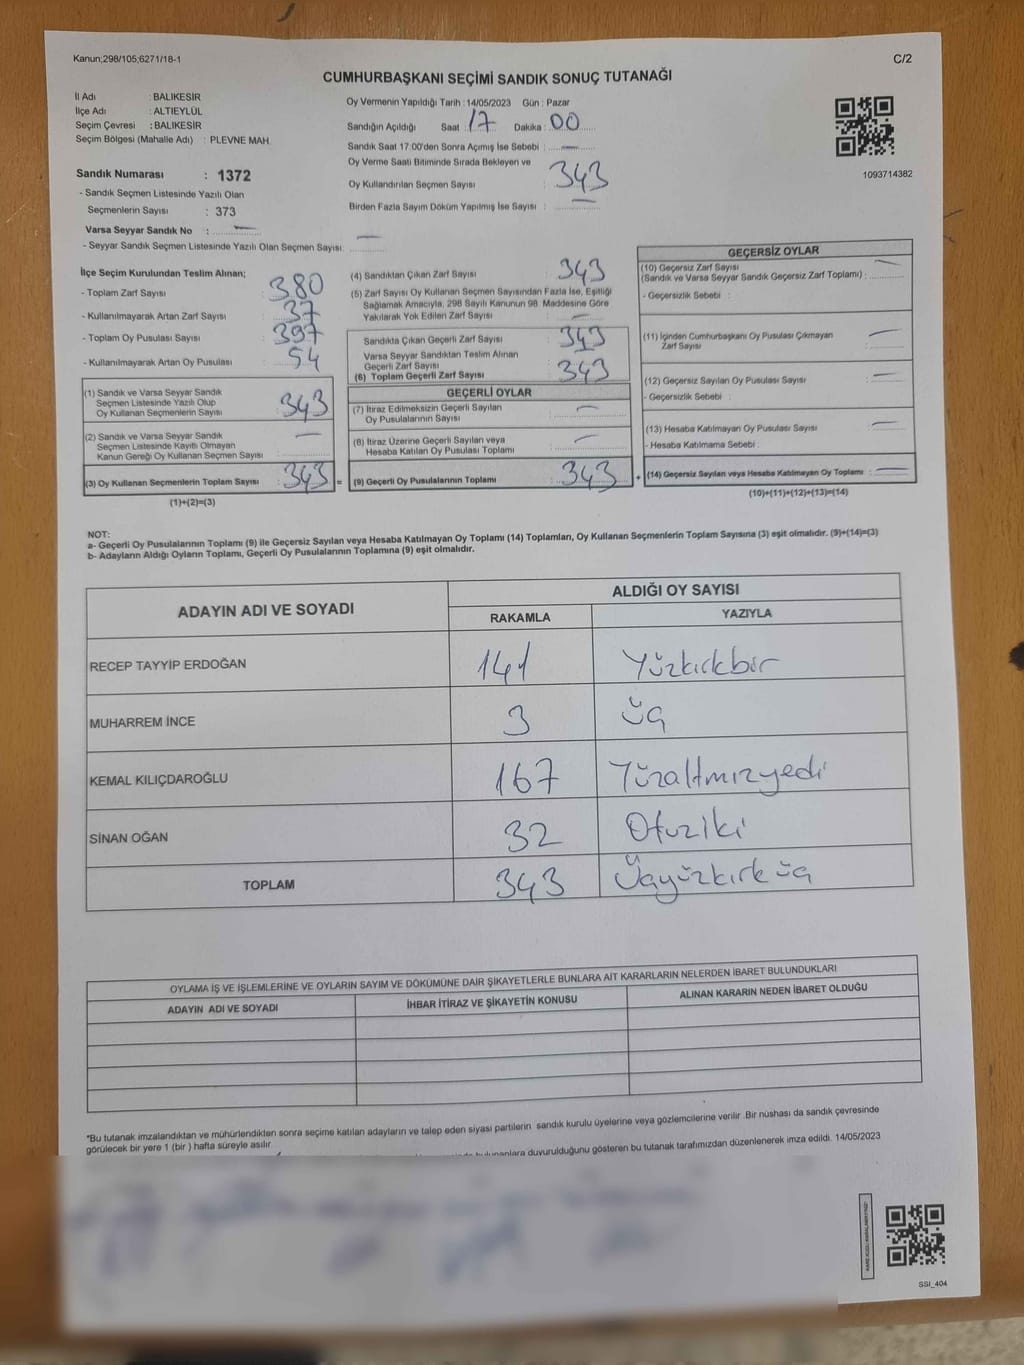 Kanun;298/105;6271/18-1
C/2
CUMHURBAŞKANI SEÇİMİ SANDIK SONUÇ TUTANAĞI
İl Adı : BALIKESİR
İlçe Adı : ALTIEYLÜL
Seçim Çevresi : BALIKESİR
Seçim Bölgesi (Mahalle Adı) : PLEVNE MAH.
Sandık Numarası : 1372
- Sandık Seçmen Listesinde Yazılı Olan
Seçmenlerin Sayısı : 373
Varsa Seyyar Sandık No : —
- Seyyar Sandık Seçmen Listesinde Yazılı Olan Seçmen Sayısı: —
Oy Vermenin Yapıldığı Tarih : 14/05/2023 Gün : Pazar
Sandığın Açıldığı Saat : 17 Dakika : 00
Sandık Saat 17:00'den Sonra Açımış İse Sebebi : —
Oy Verme Saati Bitiminde Sırada Bekleyen ve
Oy Kullandırılan Seçmen Sayısı : 343
Birden Fazla Sayım Döküm Yapılmış İse Sayısı : —
1093714382
İlçe Seçim Kurulundan Teslim Alınan;
- Toplam Zarf Sayısı : 380
- Kullanılmayarak Artan Zarf Sayısı : 37
- Toplam Oy Pusulası Sayısı : 397
- Kullanılmayarak Artan Oy Pusulası : 54
(1) Sandık ve Varsa Seyyar Sandık
Seçmen Listesinde Yazılı Olup
Oy Kullanan Seçmenlerin Sayısı : 343
(2) Sandık ve Varsa Seyyar Sandık
Seçmen Listesinde Kayıtlı Olmayan
Kanun Gereği Oy Kullanan Seçmen Sayısı : —
(3) Oy Kullanan Seçmenlerin Toplam Sayısı : 343 =
(1)+(2)=(3)
(4) Sandıktan Çıkan Zarf Sayısı : 343
(5) Zarf Sayısı Oy Kullanan Seçmen Sayısından Fazla İse, Eşitliği
Sağlamak Amacıyla, 298 Sayılı Kanunun 98. Maddesine Göre
Yakılarak Yok Edilen Zarf Sayısı : —
Sandıkta Çıkan Geçerli Zarf Sayısı : 343
Varsa Seyyar Sandıktan Teslim Alınan
Geçerli Zarf Sayısı : —
(6) Toplam Geçerli Zarf Sayısı : 343
GEÇERLİ OYLAR
(7) İtiraz Edilmeksizin Geçerli Sayılan
Oy Pusulalarının Sayısı : —
(8) İtiraz Üzerine Geçerli Sayılan veya
Hesaba Katılan Oy Pusulası Toplamı : —
(9) Geçerli Oy Pusulalarının Toplamı : 343 +
GEÇERSİZ OYLAR
(10) Geçersiz Zarf Sayısı
(Sandık ve Varsa Seyyar Sandık Geçersiz Zarf Toplamı) : —
- Geçersizlik Sebebi :
(11) İçinden Cumhurbaşkanı Oy Pusulası Çıkmayan
Zarf Sayısı : —
(12) Geçersiz Sayılan Oy Pusulası Sayısı : —
- Geçersizlik Sebebi :
(13) Hesaba Katılmayan Oy Pusulası Sayısı : —
- Hesaba Katılmama Sebebi :
(14) Geçersiz Sayılan veya Hesaba Katılmayan Oy Toplamı : —
(10)+(11)+(12)+(13)=(14)
NOT:
a- Geçerli Oy Pusulalarının Toplamı (9) ile Geçersiz Sayılan veya Hesaba Katılmayan Oy Toplamı (14) Toplamları, Oy Kullanan Seçmenlerin Toplam Sayısına (3) eşit olmalıdır. (9)+(14)=(3)
b- Adayların Aldığı Oyların Toplamı, Geçerli Oy Pusulalarının Toplamına (9) eşit olmalıdır.
ADAYIN ADI VE SOYADI
ALDIĞI OY SAYISI
RAKAMLA YAZIYLA
RECEP TAYYİP ERDOĞAN 141 Yüzkırkbir
MUHARREM İNCE 3 Üç
KEMAL KILIÇDAROĞLU 167 Yüzaltmızyedi
SİNAN OĞAN 32 Otuziki
TOPLAM 343 Üçyüzkırk üç
OYLAMA İŞ VE İŞLEMLERİNE VE OYLARIN SAYIM VE DÖKÜMÜNE DAİR ŞİKAYETLERLE BUNLARA AİT KARARLARIN NELERDEN İBARET BULUNDUKLARI
ADAYIN ADI VE SOYADI İHBAR İTİRAZ VE ŞİKAYETİN KONUSU ALINAN KARARIN NEDEN İBARET OLDUĞU
*Bu tutanak imzalandıktan ve mühürlendikten sonra seçime katılan adayların ve talep eden siyasi partilerin sandık kurulu üyelerine veya gözlemcilerine verilir .Bir nüshası da sandık çevresinde
görülecek bir yere 1 (bir ) hafta süreyle asılır.
duyurulduğunu gösteren bu tutanak tarafımızdan düzenlenerek imza edildi. 14/05/2023
SSI_404